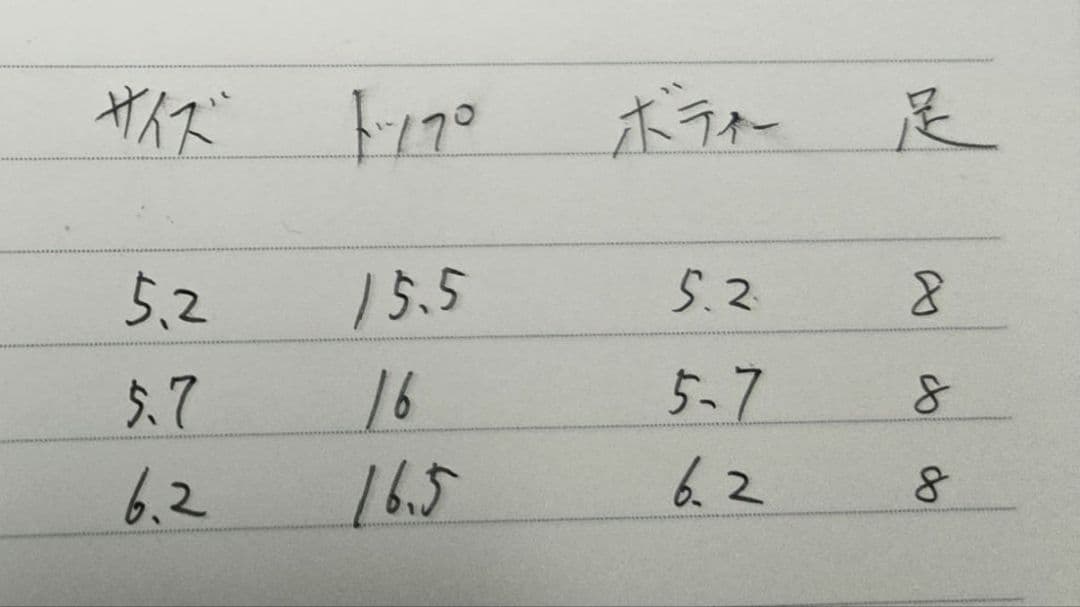 サイズ トップ ボディー 足
5.2 15.5 5.2 8
5.7 16 5.7 8
6.2 16.5 6.2 8